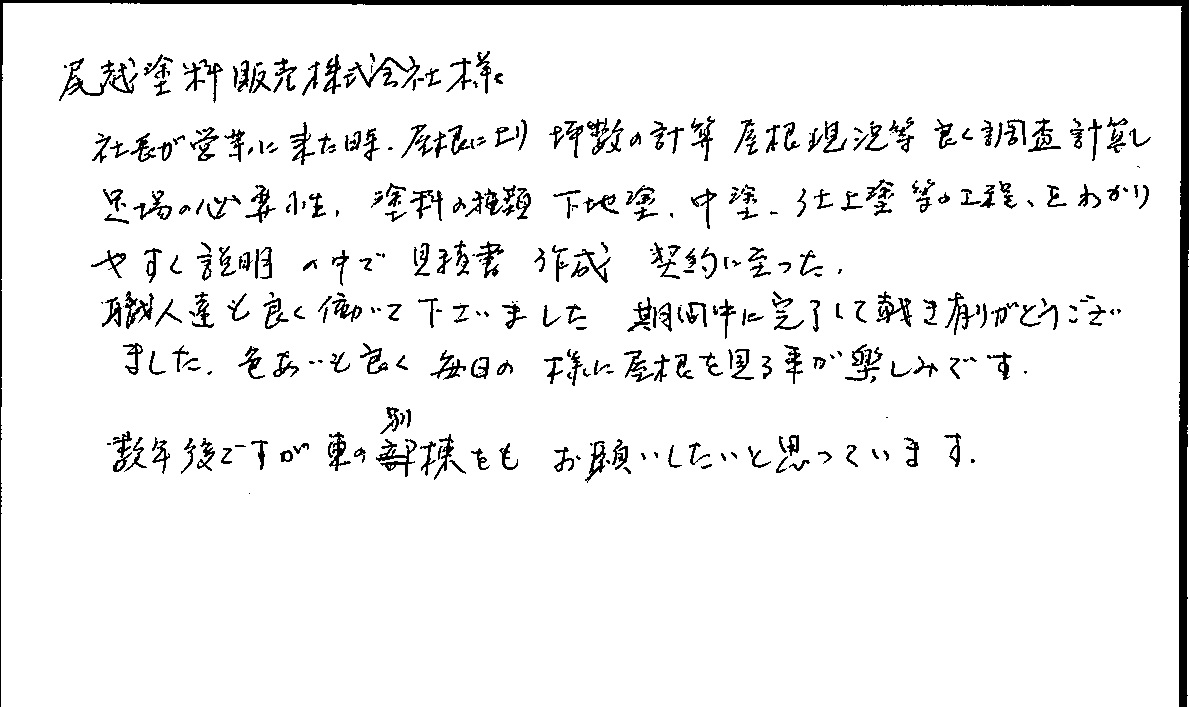 尾越塗料販売株式会社様
社長が営業に来た時、屋根に上り 坪数の計算 屋根現況等 良く調査計算し
足場の必要性、塗料の種類 下地塗、中塗、仕上塗等の工程、をわかり
やすく説明の中で 見積書 作成 契約に至った。
職人達も良く働いて下さいました 期間中に完了して戴き有りがとうござい
ました。色あいも良く 毎日の様に屋根を見る事が楽しみです。
数年後ですが東の別棟をも お願いしたいと思っています。